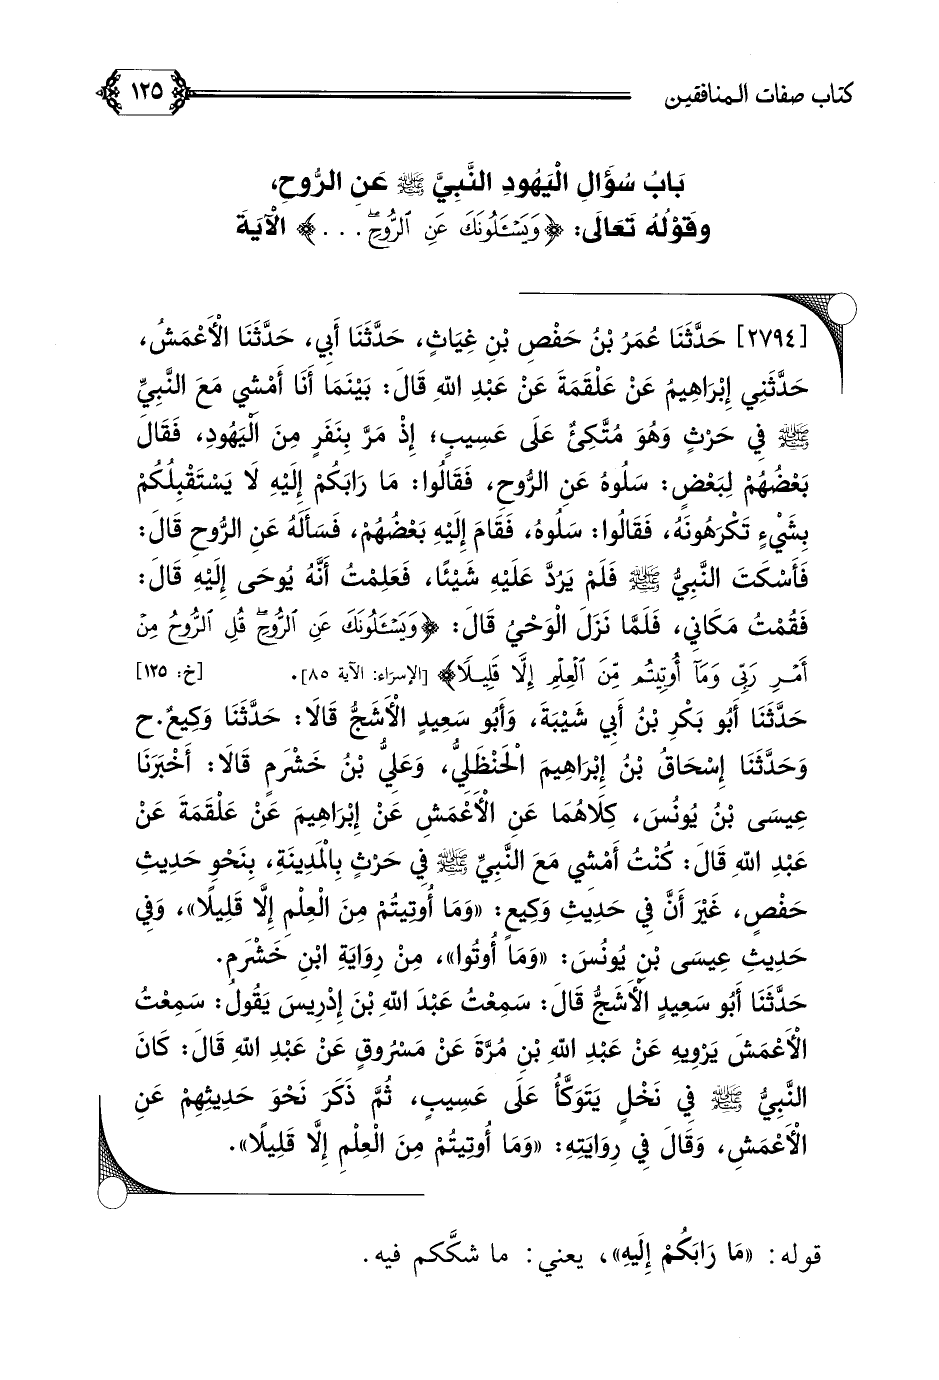 كتاب صفات المنافقين
١٢٥
بَابُ سُؤَالِ الْيَهُودِ النَّبِيَّ ﷺ عَنِ الرُّوحِ،
وقَوْلُهُ تَعَالَى: ﴿وَيَسْـَٔلُونَكَ عَنِ ٱلرُّوحِۖ . . .﴾ الْآيَةَ
[٢٧٩٤] حَدَّثَنَا عُمَرُ بْنُ حَفْصِ بْنِ غِيَاثٍ، حَدَّثَنَا أَبِي، حَدَّثَنَا الْأَعْمَشُ،
حَدَّثَنِي إِبْرَاهِيمُ عَنْ عَلْقَمَةَ عَنْ عَبْدِ اللهِ قَالَ: بَيْنَمَا أَنَا أَمْشِي مَعَ النَّبِيِّ
ﷺ فِي حَرْثٍ وَهُوَ مُتَّكِئٌ عَلَى عَسِيبٍ؛ إِذْ مَرَّ بِنَفَرٍ مِنَ الْيَهُودِ، فَقَالَ
بَعْضُهُمْ لِبَعْضٍ: سَلُوهُ عَنِ الرُّوحِ، فَقَالُوا: مَا رَابَكُمْ إِلَيْهِ لَا يَسْتَقْبِلُكُمْ
بِشَيْءٍ تَكْرَهُونَهُ، فَقَالُوا: سَلُوهُ، فَقَامَ إِلَيْهِ بَعْضُهُمْ، فَسَأَلَهُ عَنِ الرُّوحِ قَالَ:
فَأَسْكَتَ النَّبِيُّ ﷺ فَلَمْ يَرُدَّ عَلَيْهِ شَيْئًا، فَعَلِمْتُ أَنَّهُ يُوحَى إِلَيْهِ قَالَ:
فَقُمْتُ مَكَانِي، فَلَمَّا نَزَلَ الْوَحْيُ قَالَ: ﴿وَيَسْـَٔلُونَكَ عَنِ ٱلرُّوحِۖ قُلِ ٱلرُّوحُ مِنْ
أَمْرِ رَبِّى وَمَآ أُوتِيتُم مِّنَ ٱلْعِلْمِ إِلَّا قَلِيلًا﴾ [الإسرَاء: الآية ٨٥]. [خ: ١٢٥]
حَدَّثَنَا أَبُو بَكْرِ بْنُ أَبِي شَيْبَةَ، وَأَبُو سَعِيدٍ الْأَشَجُّ قَالَا: حَدَّثَنَا وَكِيعٌ.ح
وَحَدَّثَنَا إِسْحَاقُ بْنُ إِبْرَاهِيمَ الْحَنْظَلِيُّ، وَعَلِيُّ بْنُ خَشْرَمٍ قَالَا: أَخْبَرَنَا
عِيسَى بْنُ يُونُسَ، كِلَاهُمَا عَنِ الْأَعْمَشِ عَنْ إِبْرَاهِيمَ عَنْ عَلْقَمَةَ عَنْ
عَبْدِ اللهِ قَالَ: كُنْتُ أَمْشِي مَعَ النَّبِيِّ ﷺ فِي حَرْثٍ بِالْمَدِينَةِ، بِنَحْوِ حَدِيثِ
حَفْصٍ، غَيْرَ أَنَّ فِي حَدِيثِ وَكِيعٍ: «وَمَا أُوتِيتُمْ مِنَ الْعِلْمِ إِلَّا قَلِيلًا»، وَفِي
حَدِيثِ عِيسَى بْنِ يُونُسَ: «وَمَا أُوتُوا»، مِنْ رِوَايَةِ ابْنِ خَشْرَمٍ.
حَدَّثَنَا أَبُو سَعِيدٍ الْأَشَجُّ قَالَ: سَمِعْتُ عَبْدَ اللهِ بْنَ إِدْرِيسَ يَقُولُ: سَمِعْتُ
الْأَعْمَشَ يَرْوِيهِ عَنْ عَبْدِ اللهِ بْنِ مُرَّةَ عَنْ مَسْرُوقٍ عَنْ عَبْدِ اللهِ قَالَ: كَانَ
النَّبِيُّ ﷺ فِي نَخْلٍ يَتَوَكَّأُ عَلَى عَسِيبٍ، ثُمَّ ذَكَرَ نَحْوَ حَدِيثِهِمْ عَنِ
الْأَعْمَشِ، وَقَالَ فِي رِوَايَتِهِ: «وَمَا أُوتِيتُمْ مِنَ الْعِلْمِ إِلَّا قَلِيلًا».
قوله: «مَا رَابَكُمْ إِلَيهِ»، يعني: ما شكَّككم فيه.